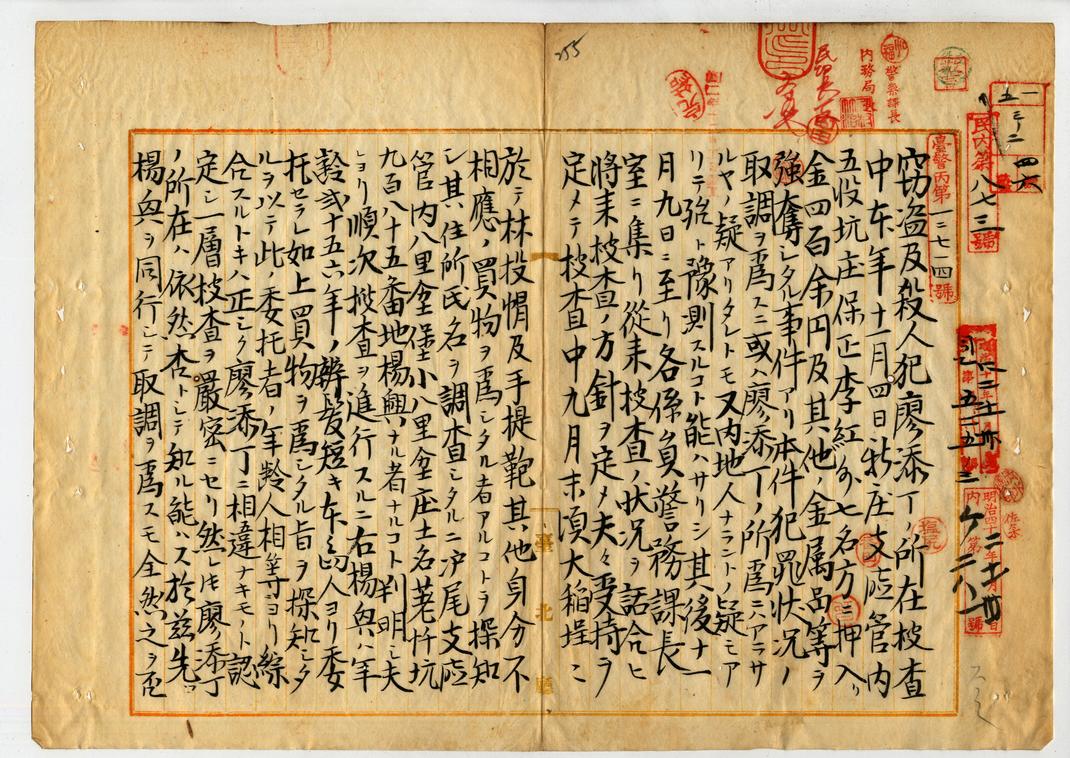 臺警丙第一二七一四號
民內第八七三號
窃盗及殺人犯廖添丁ノ所在捜査
中本年十一月四日新庄支廳管内
五股坑庄保正李紅外七名方ニ押入リ
金四百余円及其他ノ金属品等ヲ
強奪シタル事件アリ本件犯罪状況ノ
取調ヲ爲スニ或ハ廖添丁ノ所爲ニハアラサ
ルヤノ疑アリタレトモ又内地人ナラントノ疑モア
リテ強ト豫測スルコト能ハサリシ其後十一
月九日ニ至リ各係員警務課長
室ニ集リ從来捜査ノ状况ヲ話合ヒ
將来捜査ノ方針ヲ定メ夫々受持ヲ
定メテ捜査中九月末頃大稲埕ニ
於テ林投帽及手提鞄其他身分不
相應ノ買物ヲ爲シタル者アルコトヲ探知
シ其住所氏名ヲ調査シタルニ滬尾支廳
管内八里坌堡小八里坌庄土名荖阡坑
九百八十五番地楊興ナル者ナルコト判明シ夫
ヨリ順次捜査ヲ進行スルニ右楊興ハ年
齡弐十五六年ノ辮髪短キ本島人ヨリ委
托セラレ如上買物ヲ爲シタル旨ヲ探知シタ
ルヲ以テ此ノ委托者ノ年齡人相等ヨリ綜
合スルトキハ正シク廖添丁ニ相違ナキモノト認
定シ一層捜査ヲ嚴密ニセリ然レトモ廖添丁
ノ所在ハ依然杳トシテ知ル能ハス於茲先ツ
楊興ヲ同行シテ取調ヲ爲スモ全然之ヲ否
臺北廳
255
警察課長
内務局長